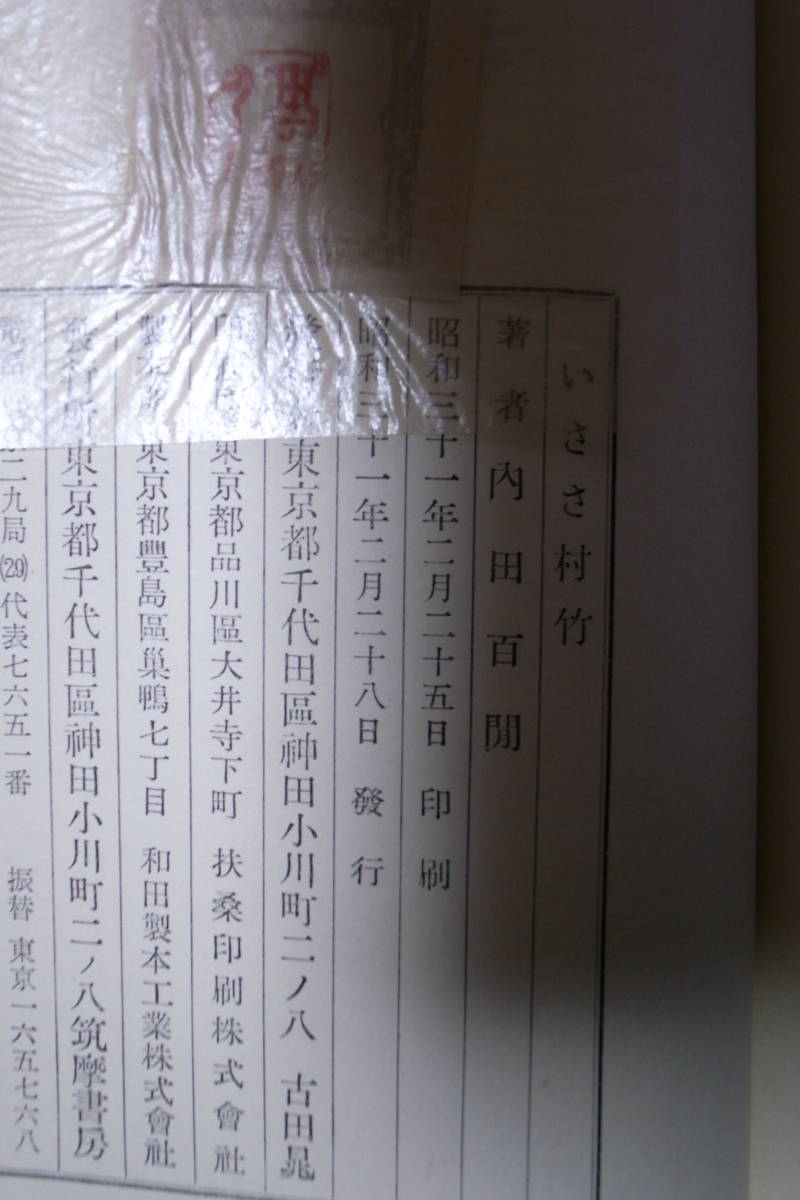 いささ村竹
著者 內田百閒
昭和三十一年二月二十五日 印刷
昭和三十一年二月二十八日 發行
東京都千代田區神田小川町二ノ八 古田晁
東京都品川區大井寺下町 扶桑印刷株式會社
製本所 東京都豐島區巢鴨七丁目 和田製本工業株式會社
發行所 東京都千代田區神田小川町二ノ八 筑摩書房
電話 二九局(29)代表七六五一番 振替 東京一六五七六八